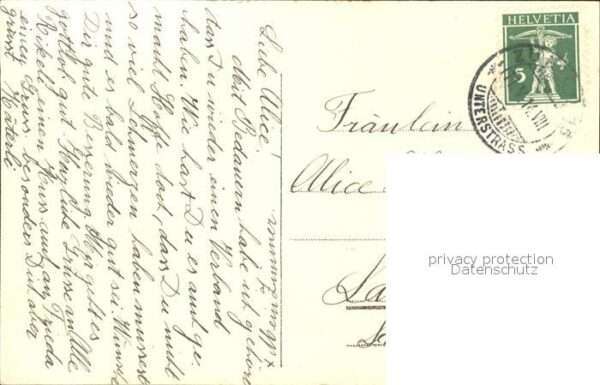 HELVETIA
5
UNTERSTRASS
Liebe Alice!
Mit Bedauern habe ich gehört
dass Du wieder einen Verband
haben. Wie hast Du es auch ge-
macht. Hoffe doch, dass Du nicht
so viel Schmerzen haben müssest
und es bald wieder gut sei. Wünsche
Dir gute Besserung. Hier geht es
gottlob gut. Herzliche Grüsse an Alle
einen Kuss
einen Gruss besonders Dich aber
grüsst
Fräulein
Alice
privacy protection
Datenschutz